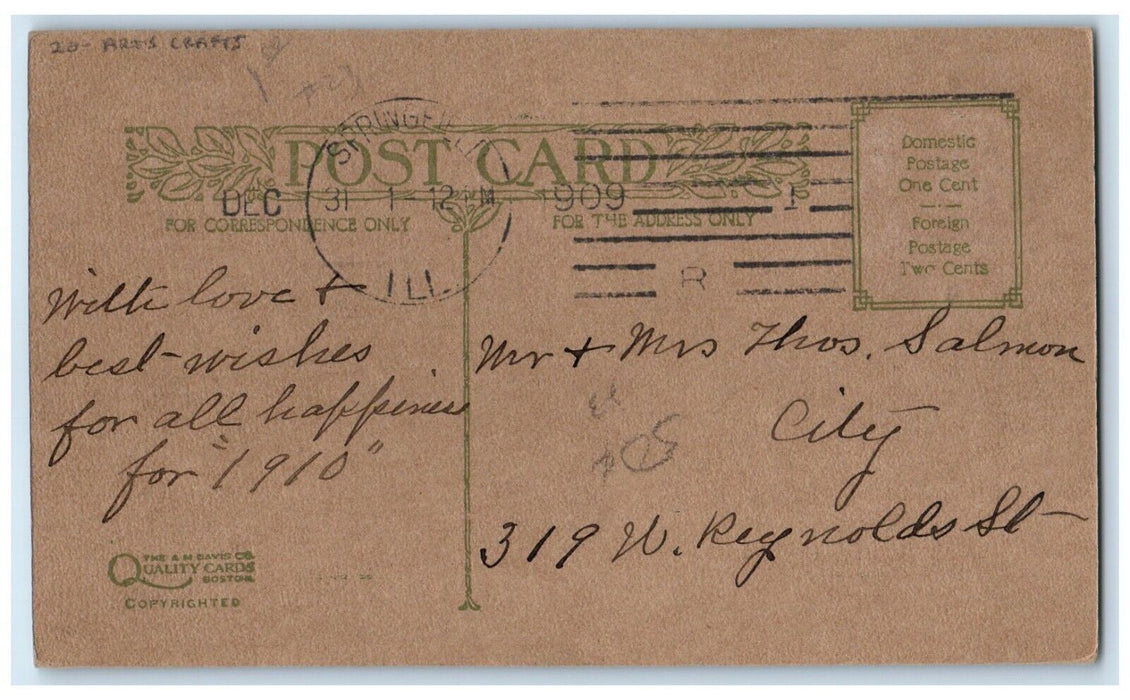 20- ARTS CRAFTS
POST CARD
SPRINGFIELD
DEC 31 1-12 PM 1909
ILL.
1
R
FOR CORRESPONDENCE ONLY
FOR THE ADDRESS ONLY
Domestic
Postage
One Cent
Foreign
Postage
Two Cents
With love +
best-wishes
for all happiness
for "1910"
Mr + Mrs Thos. Salmon
City
319 W. Reynolds St
THE A M DAVIS CO.
QUALITY CARDS
BOSTON
COPYRIGHTED